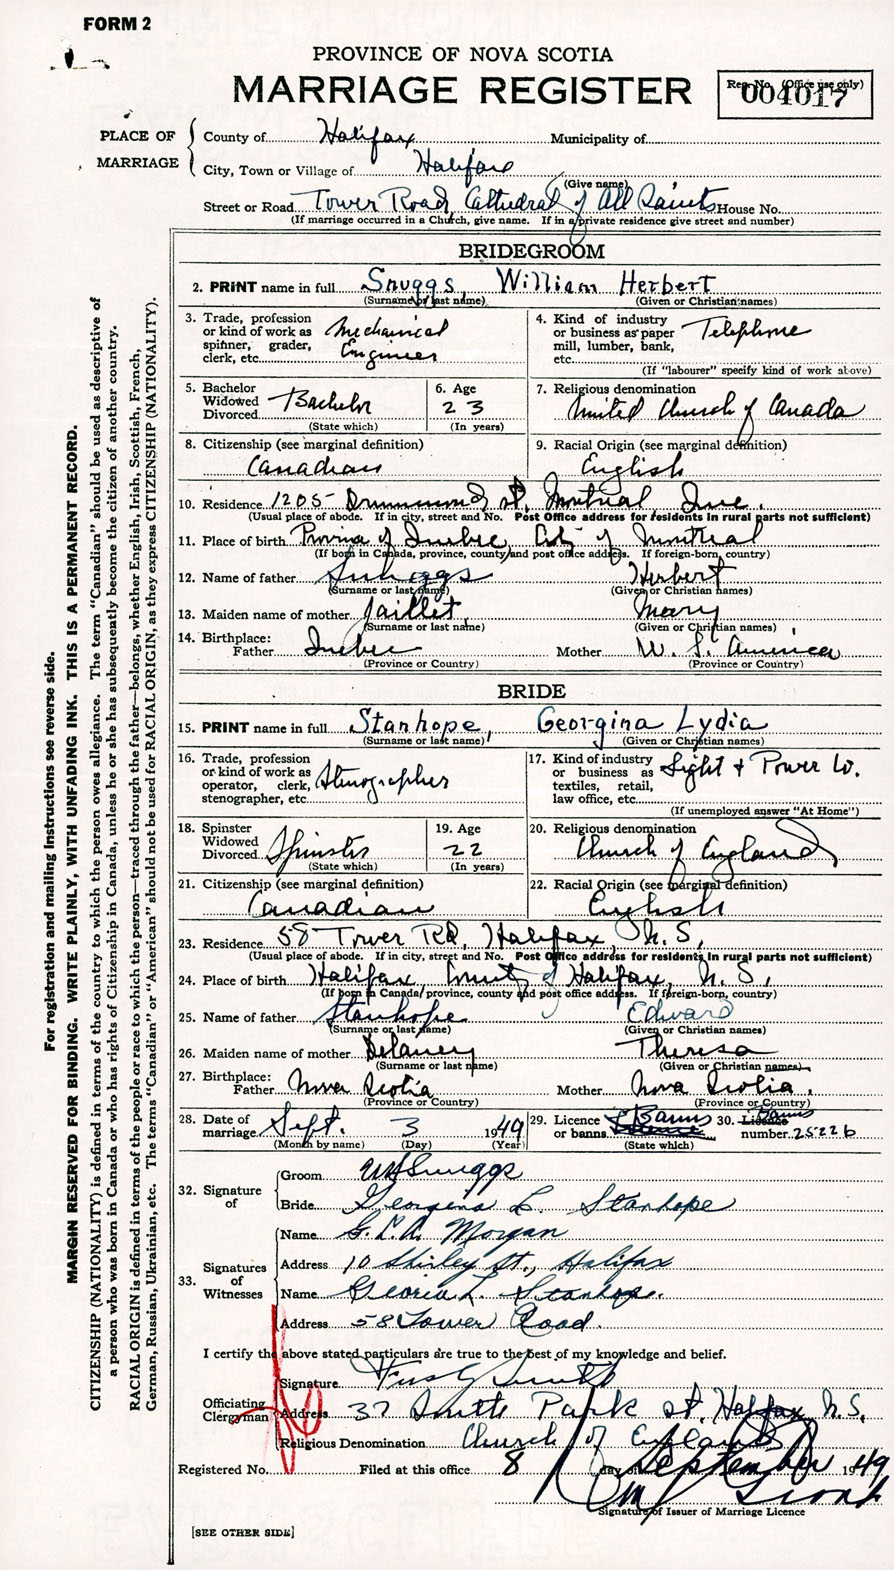 FORM 2
PROVINCE OF NOVA SCOTIA
MARRIAGE REGISTER
Reg. No. (Office use only)
004017
PLACE OF MARRIAGE
County of Halifax Municipality of
City, Town or Village of Halifax
(Give name)
Street or Road Tower Road, Cathedral of All Saints House No.
(If marriage occurred in a Church, give name. If in a private residence give street and number)
BRIDEGROOM
2. PRINT name in full Snuggs, William Herbert
(Surname or last name) (Given or Christian names)
3. Trade, profession or kind of work as spinner, grader, clerk, etc. Mechanical Engineer
4. Kind of industry or business as paper mill, lumber, bank, etc. Telephone
(If "labourer" specify kind of work above)
5. Bachelor Widowed Divorced Bachelor
(State which)
6. Age 23
(In years)
7. Religious denomination
United Church of Canada
8. Citizenship (see marginal definition)
Canadian
9. Racial Origin (see marginal definition)
English
10. Residence 1205 Drummond St. Montreal, Que.
(Usual place of abode. If in city, street and No. Post Office address for residents in rural parts not sufficient)
11. Place of birth Province of Quebec, City of Montreal
(If born in Canada, province, county and post office address. If foreign-born, country)
12. Name of father Snuggs Herbert
(Surname or last name) (Given or Christian names)
13. Maiden name of mother Jaillet, Mary
(Surname or last name) (Given or Christian names)
14. Birthplace:
Father Quebec Mother U. S. America
(Province or Country) (Province or Country)
BRIDE
15. PRINT name in full Stanhope, Georgina Lydia
(Surname or last name) (Given or Christian names)
16. Trade, profession or kind of work as operator, clerk, stenographer, etc. Stenographer
17. Kind of industry or business as textiles, retail, law office, etc. Light & Power Co.
(If unemployed answer "At Home")
18. Spinster Widowed Divorced Spinster
(State which)
19. Age 22
(In years)
20. Religious denomination
Church of England
21. Citizenship (see marginal definition)
Canadian
22. Racial Origin (see marginal definition)
English
23. Residence 58 Tower Rd, Halifax, N.S,
(Usual place of abode. If in city, street and No. Post Office address for residents in rural parts not sufficient)
24. Place of birth Halifax, County of Halifax, N.S.
(If born in Canada, province, county and post office address. If foreign-born, country)
25. Name of father Stanhope Edward
(Surname or last name) (Given or Christian names)
26. Maiden name of mother Delaney Theresa
(Surname or last name) (Given or Christian names)
27. Birthplace:
Father Nova Scotia Mother Nova Scotia.
(Province or Country) (Province or Country)
28. Date of marriage Sept. 3 1949
(Month by name) (Day) (Year)
29. Licence or banns Banns
(State which)
30. Licence Banns number 25226
32. Signature of
Groom WHSnuggs
Bride Georgina L. Stanhope
33. Signatures of Witnesses
Name G. L. A. Morgan
Address 10 Shirley St., Halifax
Name L. Stanhope.
Address 58 Tower Road.
I certify the above stated particulars are true to the best of my knowledge and belief.
Officiating Clergyman
Signature Smith
Address 37 South Park St. Halifax, N.S.
Religious Denomination Church of England
Registered No. Filed at this office 8 day of September 1949
Signature of Issuer of Marriage Licence
[SEE OTHER SIDE]
For registration and mailing instructions see reverse side.
MARGIN RESERVED FOR BINDING. WRITE PLAINLY, WITH UNFADING INK. THIS IS A PERMANENT RECORD.
CITIZENSHIP (NATIONALITY) is defined in terms of the country to which the person owes allegiance. The term "Canadian" should be used as descriptive of
a person who was born in Canada or who has rights of Citizenship in Canada, unless he or she has subsequently become the citizen of another country.
RACIAL ORIGIN is defined in terms of the people or race to which the person—traced through the father—belongs, whether English, Irish, Scottish, French,
German, Russian, Ukrainian, etc. The terms "Canadian" or "American" should not be used for RACIAL ORIGIN, as they express CITIZENSHIP (NATIONALITY).